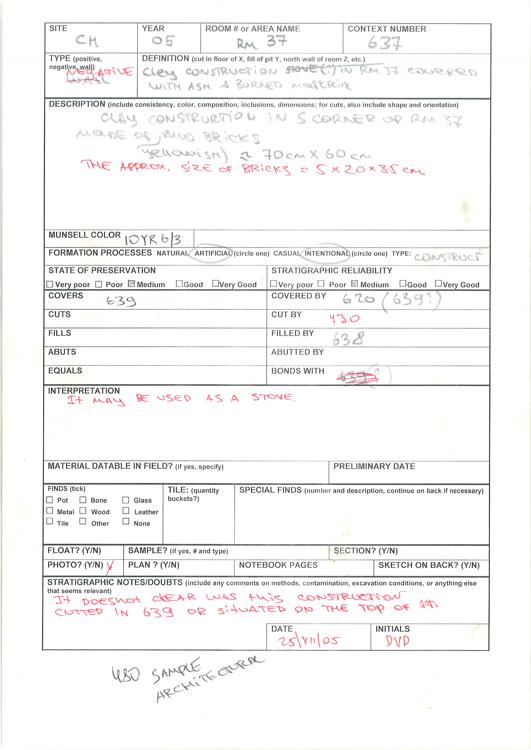 SITE YEAR ROOM # or AREA NAME CONTEXT NUMBER
CM 05 RM 37 637
TYPE (positive, negative, wall) DEFINITION (cut in floor of X, fill of pit Y, north wall of room Z, etc.)
NEGATIVE CLAY CONSTRUCTION STOVE(?) IN RM 37 COVERED
WITH ASH & BURNED MATERIAL
DESCRIPTION (include consistency, color, composition, inclusions, dimensions; for cuts, also include shape and orientation)
CLAY CONSTRUCTION IN S CORNER OF RM 37
MADE OF MUD BRICKS
YELLOWISH) ≈ 70cm X 60cm
THE APPROX. SIZE OF BRICKS = 5 X 20 X 35 cm
MUNSELL COLOR 10YR 6/3
FORMATION PROCESSES NATURAL ARTIFICIAL (circle one) CASUAL INTENTIONAL (circle one) TYPE: CONSTRUCT
STATE OF PRESERVATION STRATIGRAPHIC RELIABILITY
Very poor Poor Medium Good Very Good Very poor Poor Medium Good Very Good
COVERS 639 COVERED BY 620 (639?)
CUTS CUT BY 430
FILLS FILLED BY 638
ABUTS ABUTTED BY
EQUALS BONDS WITH
INTERPRETATION
IT MAY BE USED AS A STOVE.
MATERIAL DATABLE IN FIELD? (if yes, specify) PRELIMINARY DATE
FINDS (tick) TILE: (quantity buckets?) SPECIAL FINDS (number and description, continue on back if necessary)
Pot Bone Glass
Metal Wood Leather
Tile Other None
FLOAT? (Y/N) SAMPLE? (if yes, # and type) SECTION? (Y/N)
PHOTO? (Y/N) Y PLAN ? (Y/N) NOTEBOOK PAGES SKETCH ON BACK? (Y/N)
STRATIGRAPHIC NOTES/DOUBTS (include any comments on methods, contamination, excavation conditions, or anything else
that seems relevant)
IT DOESNOT CLEAR WAS THIS CONSTRUCTION
CUTTED IN 639 OR SITUATED ON THE TOP OF
DATE INITIALS
25/VII/05 DVD
480 SAMPLE
ARCHITECTURAL